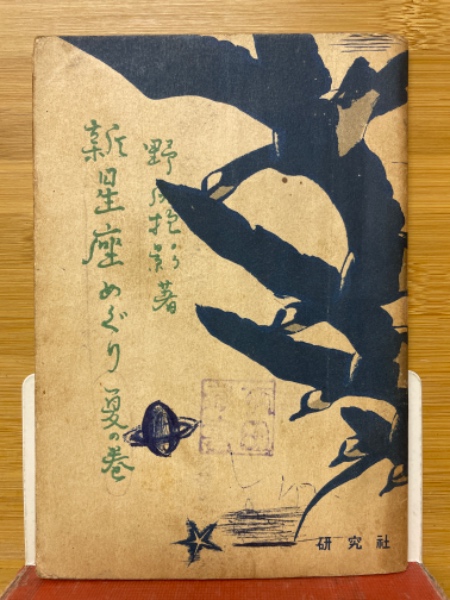 野尻抱影著
新星座めぐり 夏の巻
研究社